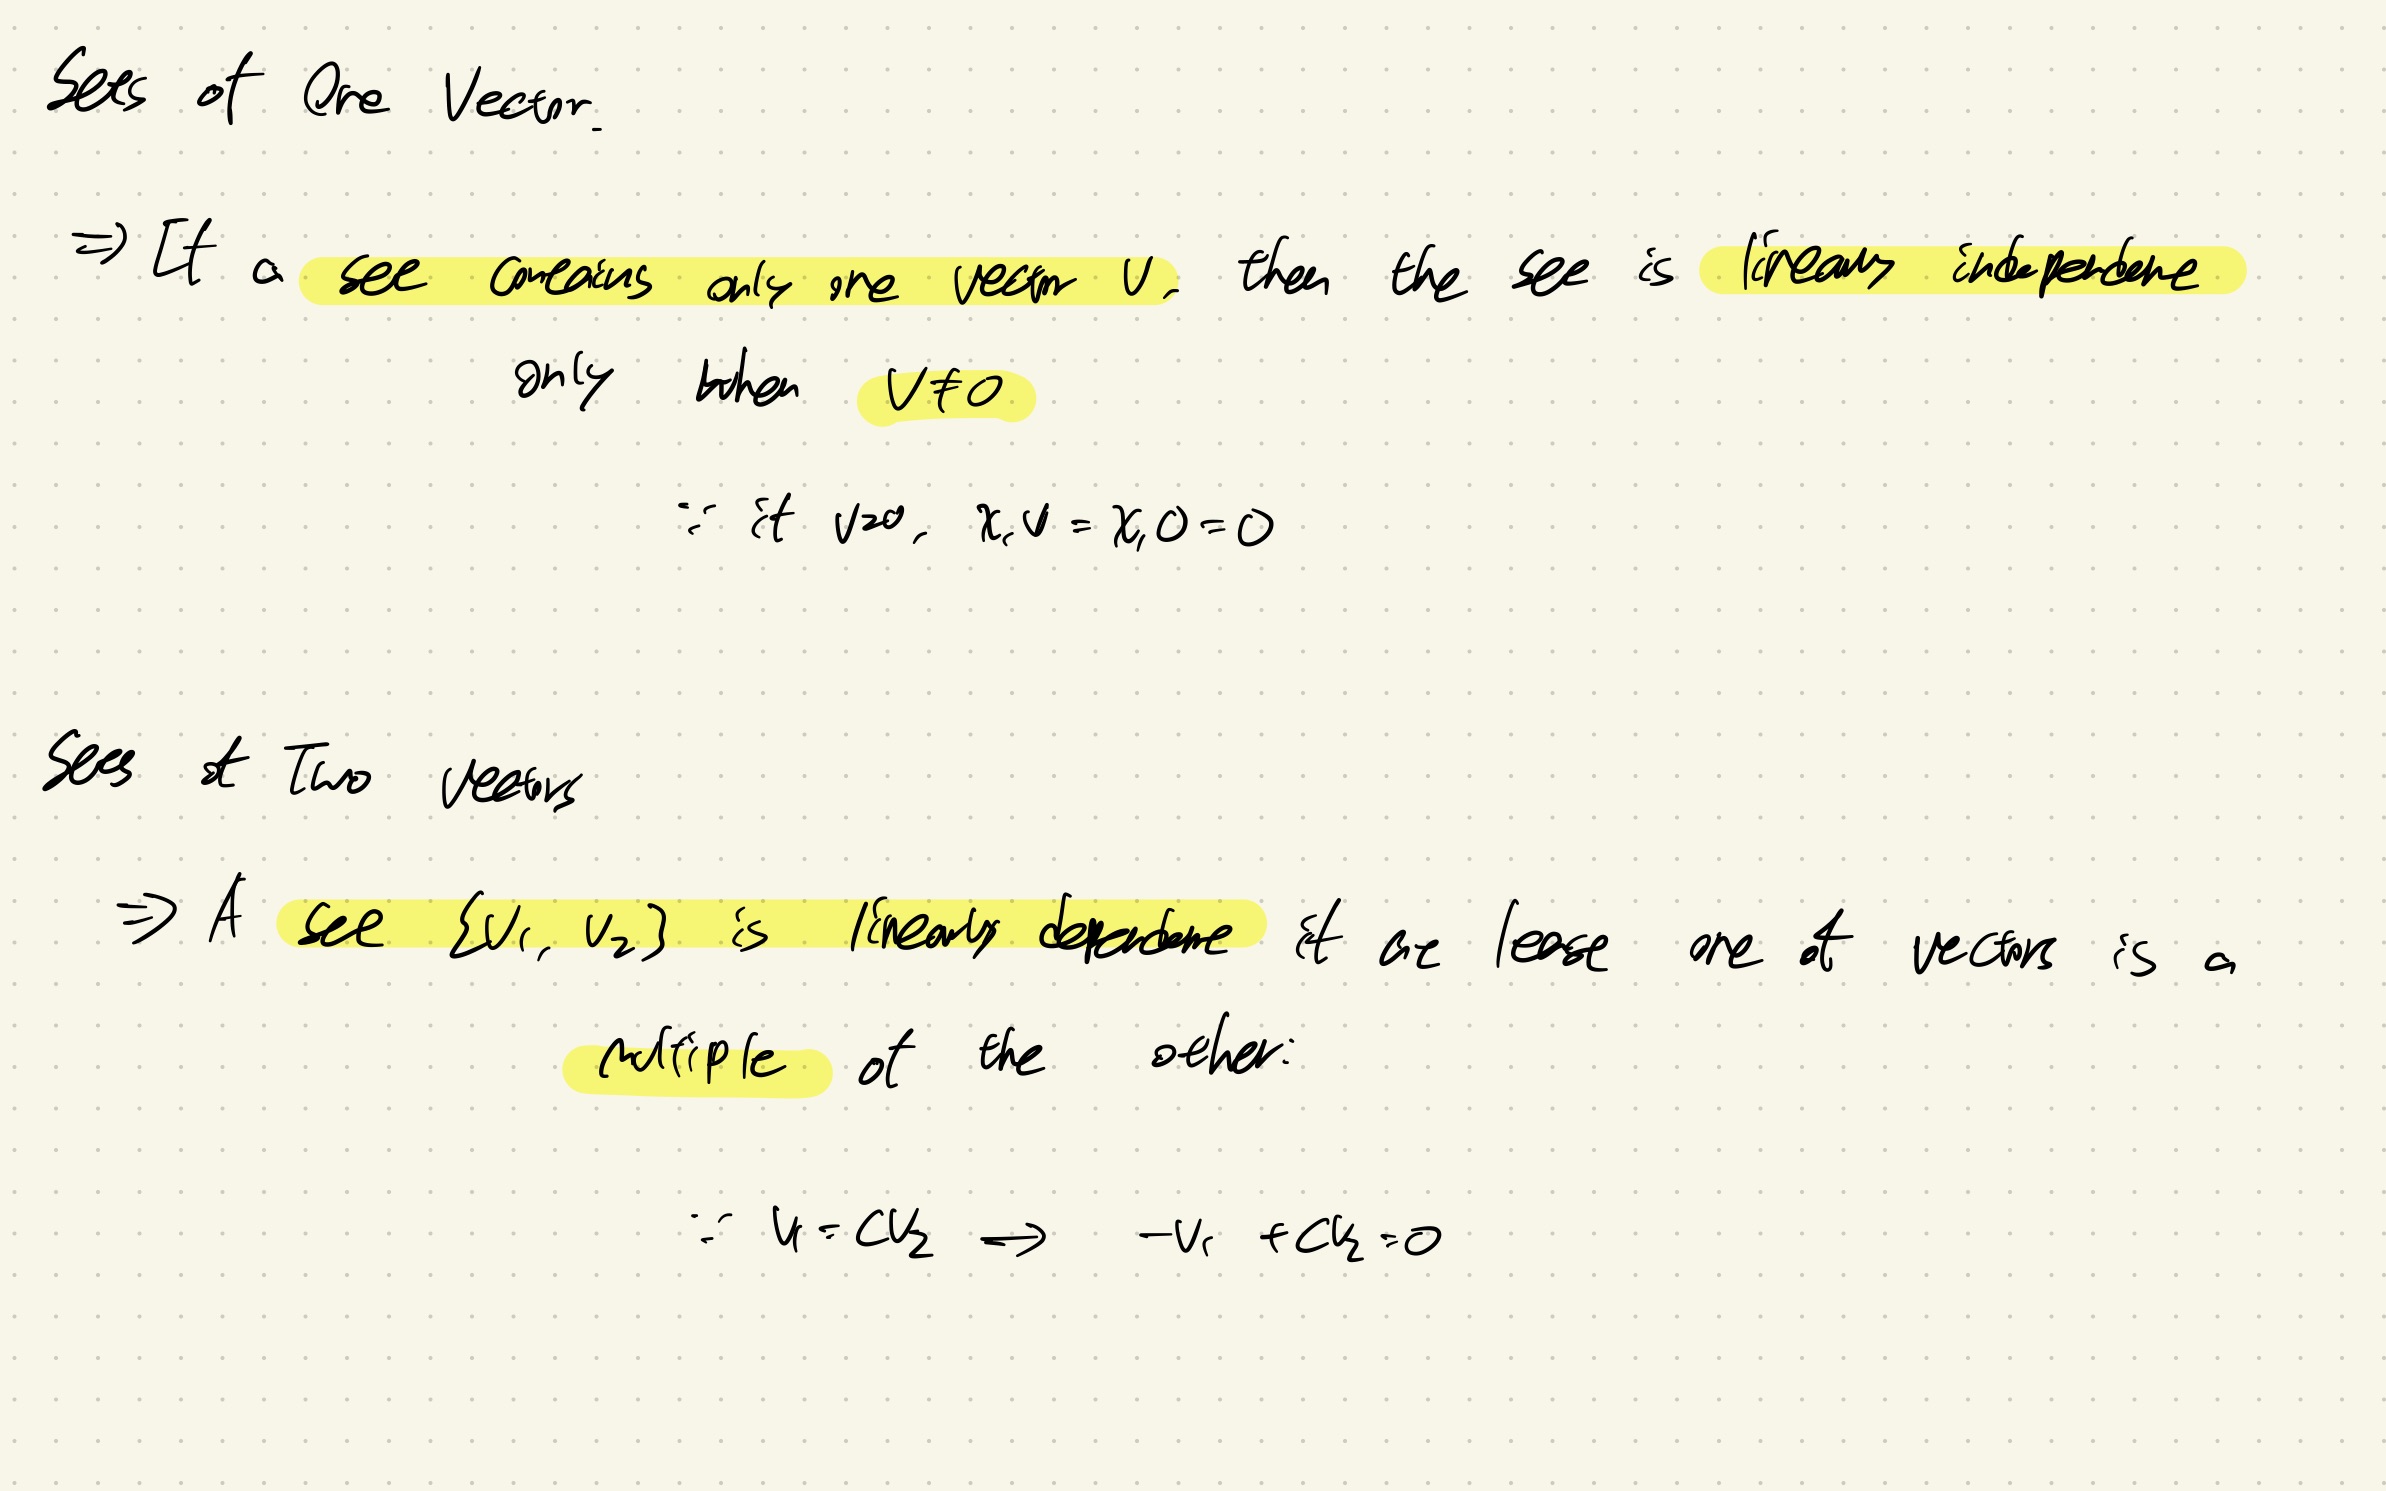 Sets of One Vector.
⇒ If a set contains only one vector v, then the set is linearly independent
only when v≠0
∵ if v=0, x₁v = x₁0 = 0
Sets of Two vectors
⇒ A set {v₁, v₂} is linearly dependent if at least one of vectors is a
multiple of the other:
∵ v₁ = cv₂ → -v₁ + cv₂ = 0